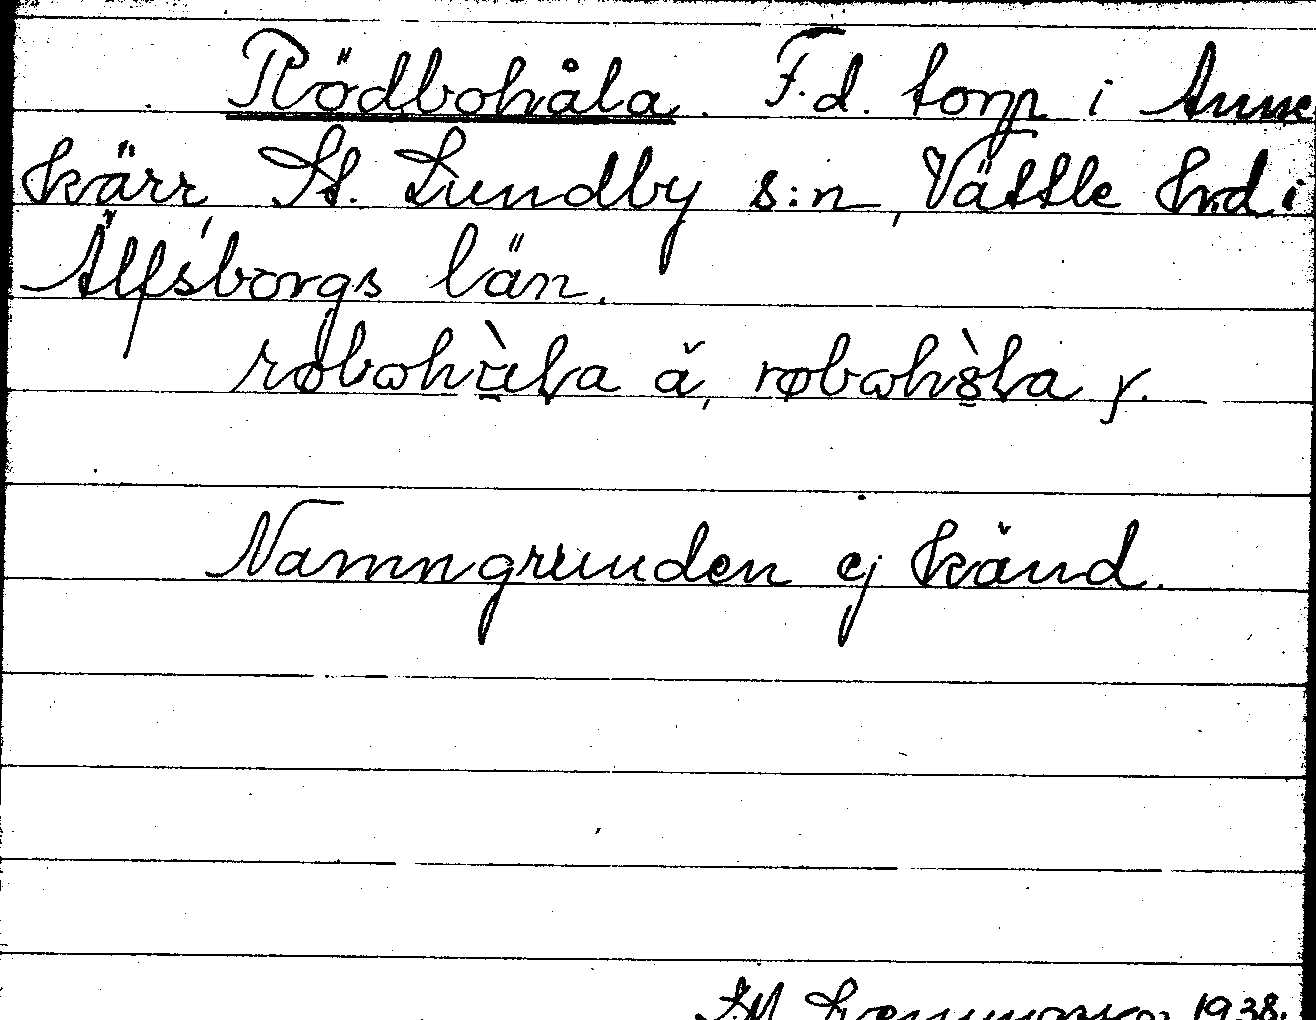 Rödbohåla. F.d. torp i Anne
kärr, St. Lundby s:n, Vättle hrd i
Älfsborgs län.
røbωhùla ä, røbωhòla y.
Namngrunden ej känd.
1938.